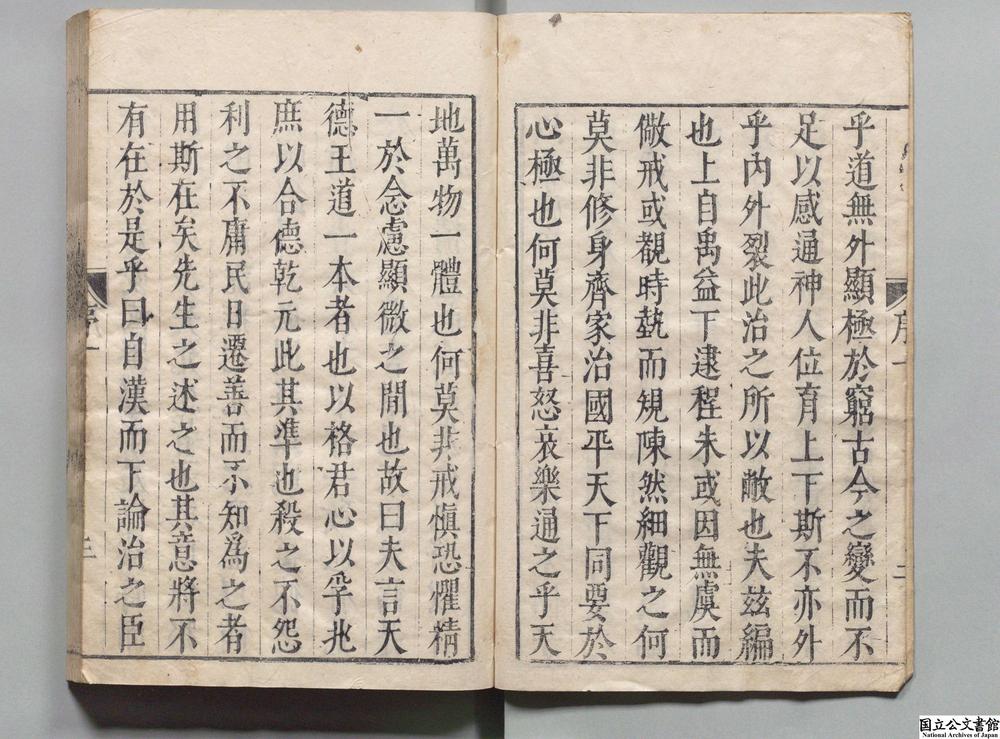 乎道無外顯極於窮古今之變而不
足以感通神人位育上下斯不亦外
乎内外裂此治之所以敝也夫玆編
也上自禹益下逮程朱或因無虞而
儆戒或觀時埶而規陳然細觀之何
莫非修身齊家治國平天下同要於
心極也何莫非喜怒哀樂通之乎天
序一
二
地萬物一體也何莫非戒愼恐懼精
一於念慮顯微之間也故曰夫言天
德王道一本者也以格君心以孚兆
庶以合德乾元此其準也殺之不怨
利之不庸民日遷善而不知爲之者
用斯在矣先生之述之也其意將不
有在於是乎曰自漢而下論治之臣
序一
三
国立公文書館
National Archives of Japan